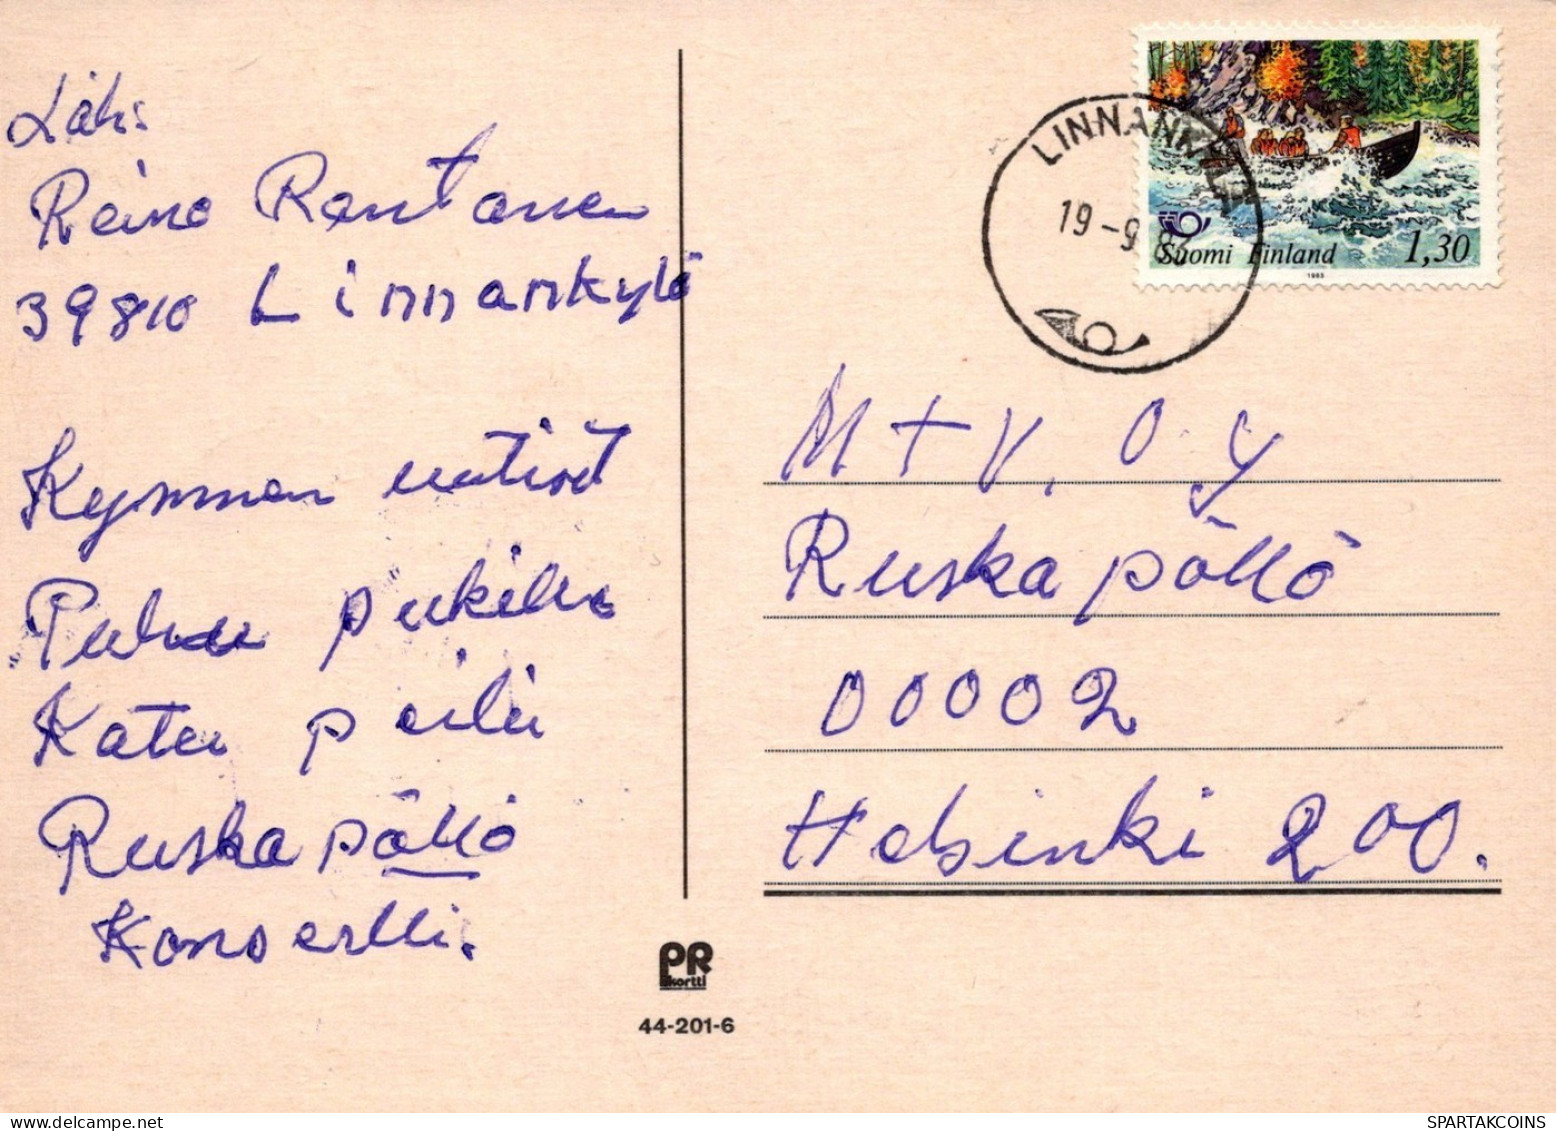 Läh:
Reino Rantanen
39810 Linnankylä
Kymmen uutiset
Puhu pukille
Katu peili
Ruska pöllö
Konsertti.
LINNANKYLÄ
19-9 83
Suomi Finland 1,30
1983
M T V. O.Y
Ruska pöllö
00002
Helsinki 200.
PR
kortti
44-201-6
SPARTAKCOINS